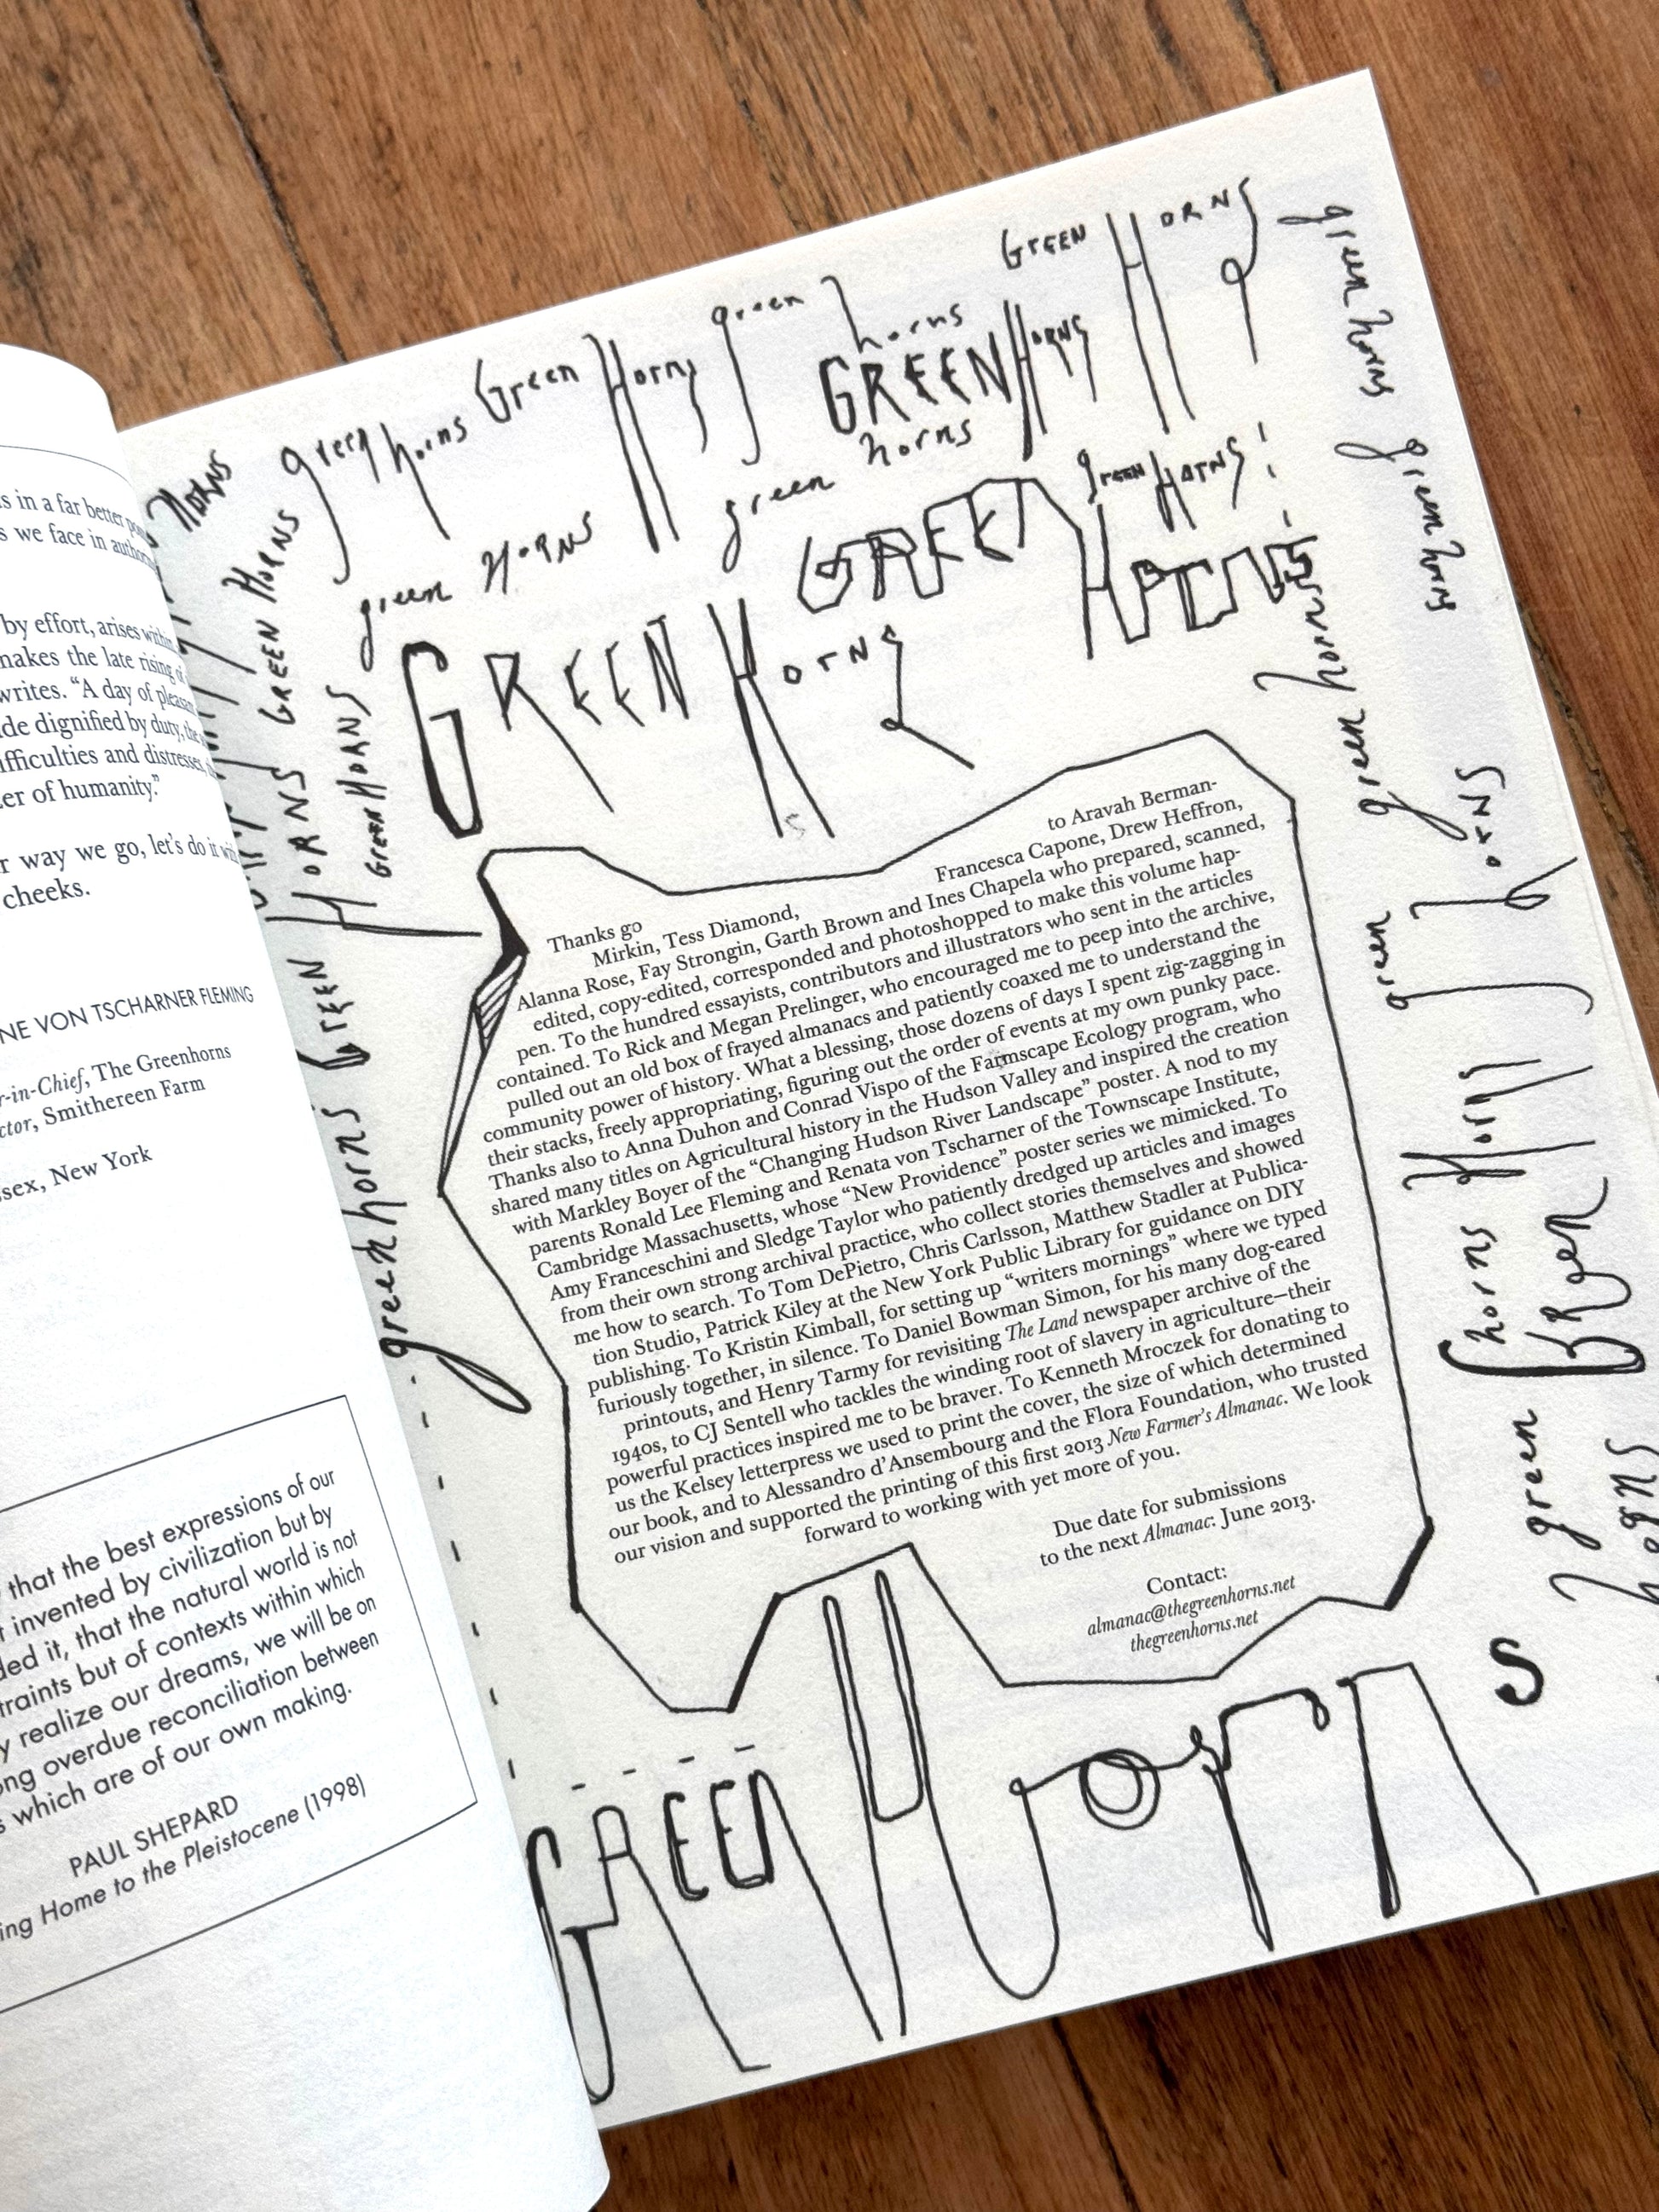 s in a far better
s we face in
by effort, arises
makes the late rising
writes. "A day of
de dignified by duty,
fficulties and distresses,
er of humanity."
r way we go, let's do it
cheeks.
NE VON TSCHARNER FLEMING
r-in-Chief, The Greenhorns
ctor, Smithereen Farm
sex, New York
that the best expressions of our
invented by civilization but by
ded it, that the natural world is not
traints but of contexts within which
y realize our dreams, we will be on
ng overdue reconciliation between
s which are of our own making.
PAUL SHEPARD
ing Home to the Pleistocene (1998)
HORNS
green horns
Green Horns
green horns
GREEN HORNS
GREEN HORNS
green horns
green HORNS
green horns
GREEN HORNS
green HORNS!
GREEN HORNS
GREEN HORNS
GREEN HORNS
GREEN HORNS
GREEN HORNS
green horns
green horns
green horns
green horns
green HORNS
Green Horns
green horns
green
horns
S
Thanks go to Aravah Berman-
Mirkin, Tess Diamond, Francesca Capone, Drew Heffron,
Alanna Rose, Fay Strongin, Garth Brown and Ines Chapela who prepared, scanned,
edited, copy-edited, corresponded and photoshopped to make this volume hap-
pen. To the hundred essayists, contributors and illustrators who sent in the articles
contained. To Rick and Megan Prelinger, who encouraged me to peep into the archive,
pulled out an old box of frayed almanacs and patiently coaxed me to understand the
community power of history. What a blessing, those dozens of days I spent zig-zagging in
their stacks, freely appropriating, figuring out the order of events at my own punky pace.
Thanks also to Anna Duhon and Conrad Vispo of the Farmscape Ecology program, who
shared many titles on Agricultural history in the Hudson Valley and inspired the creation
with Markley Boyer of the "Changing Hudson River Landscape" poster. A nod to my
parents Ronald Lee Fleming and Renata von Tscharner of the Townscape Institute,
Cambridge Massachusetts, whose "New Providence" poster series we mimicked. To
Amy Franceschini and Sledge Taylor who patiently dredged up articles and images
from their own strong archival practice, who collect stories themselves and showed
me how to search. To Tom DePietro, Chris Carlsson, Matthew Stadler at Publica-
tion Studio, Patrick Kiley at the New York Public Library for guidance on DIY
publishing. To Kristin Kimball, for setting up "writers mornings" where we typed
furiously together, in silence. To Daniel Bowman Simon, for his many dog-eared
printouts, and Henry Tarmy for revisiting The Land newspaper archive of the
1940s, to CJ Sentell who tackles the winding root of slavery in agriculture—their
powerful practices inspired me to be braver. To Kenneth Mroczek for donating to
us the Kelsey letterpress we used to print the cover, the size of which determined
our book, and to Alessandro d'Ansembourg and the Flora Foundation, who trusted
our vision and supported the printing of this first 2013 New Farmer's Almanac. We look
forward to working with yet more of you.
Due date for submissions
to the next Almanac: June 2013.
Contact:
almanac@thegreenhorns.net
thegreenhorns.net
GREEN HORN
S